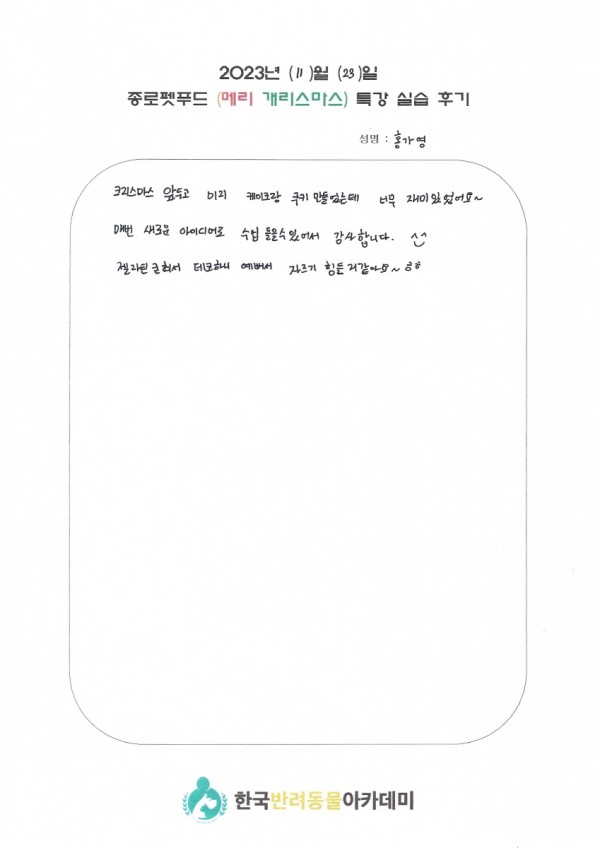 2023년 (11)월 (23)일
종로펫푸드 (메리 개리스마스) 특강 실습 후기
성명 : 홍가영
크리스마스 앞두고 미리 케이크랑 쿠키 만들었는데 너무 재미있었어요~
매번 새로운 아이디어로 수업 들을수있어서 감사합니다. ^^
젤라틴 굳혀서 데코하니 예뻐서 자르기 힘든거같아요~ ㅎㅎ
한국반려동물아카데미